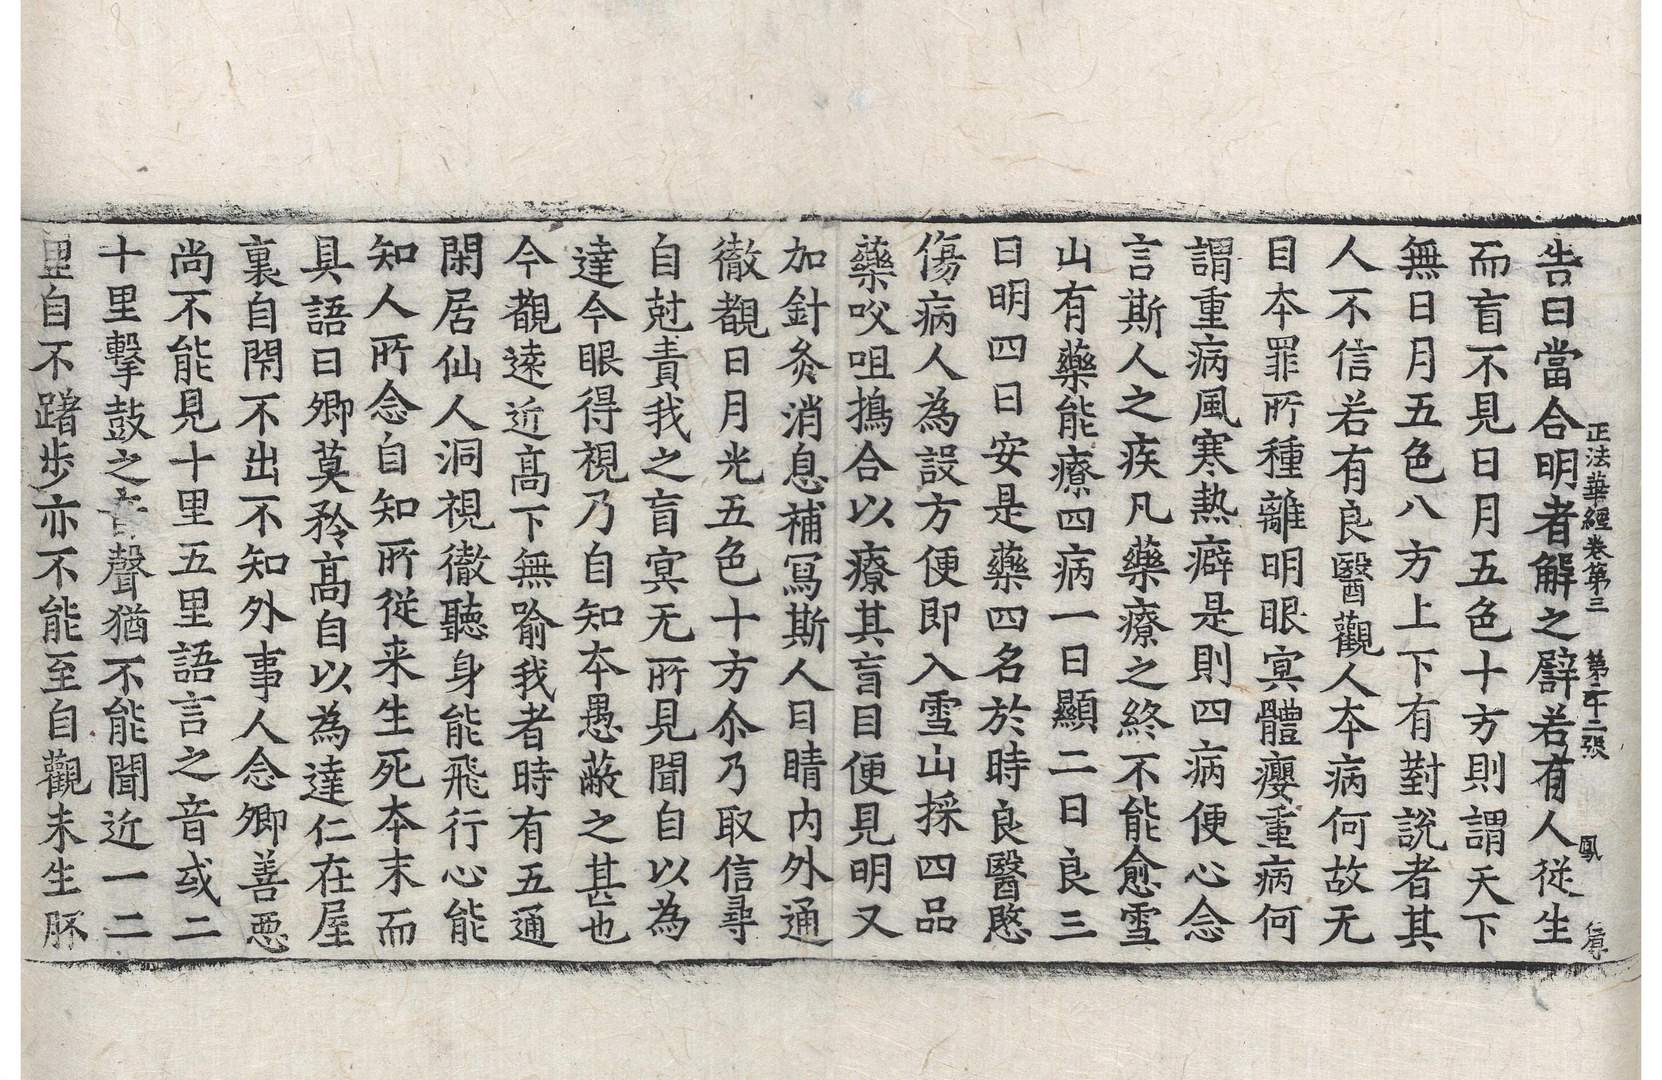 告曰當合明者解之譬若有人從生
正法華經卷第三 第二十二張 鳳
而盲不見日月五色十方則謂天下
無日月五色八方上下有對說者其
人不信若有良醫觀人本病何故无
目本罪所種離明眼冥體癭重病何
謂重病風寒熱癖是則四病便心念
言斯人之疾凡藥療之終不能愈雪
山有藥能療四病一曰顯二曰良三
曰明四曰安是藥四名於時良醫愍
傷病人為設方便即入雪山採四品
藥㕮咀擣合以療其盲目便見明又
加針灸消息補寫斯人目睛內外通
徹覩日月光五色十方尒乃取信尋
自尅責我之盲冥无所見聞自以為
達今眼得視乃自知本愚蔽之甚也
今覩遠近高下無喻我者時有五通
閑居仙人洞視徹聽身能飛行心能
知人所念自知所從来生死本末而
具語曰卿莫矜高自以為達仁在屋
裏自閇不出不知外事人念卿善惡
尚不能見十里五里語言之音或二
十里擊鼓之音聲猶不能聞近一二
里自不躇步亦不能至自觀未生胚